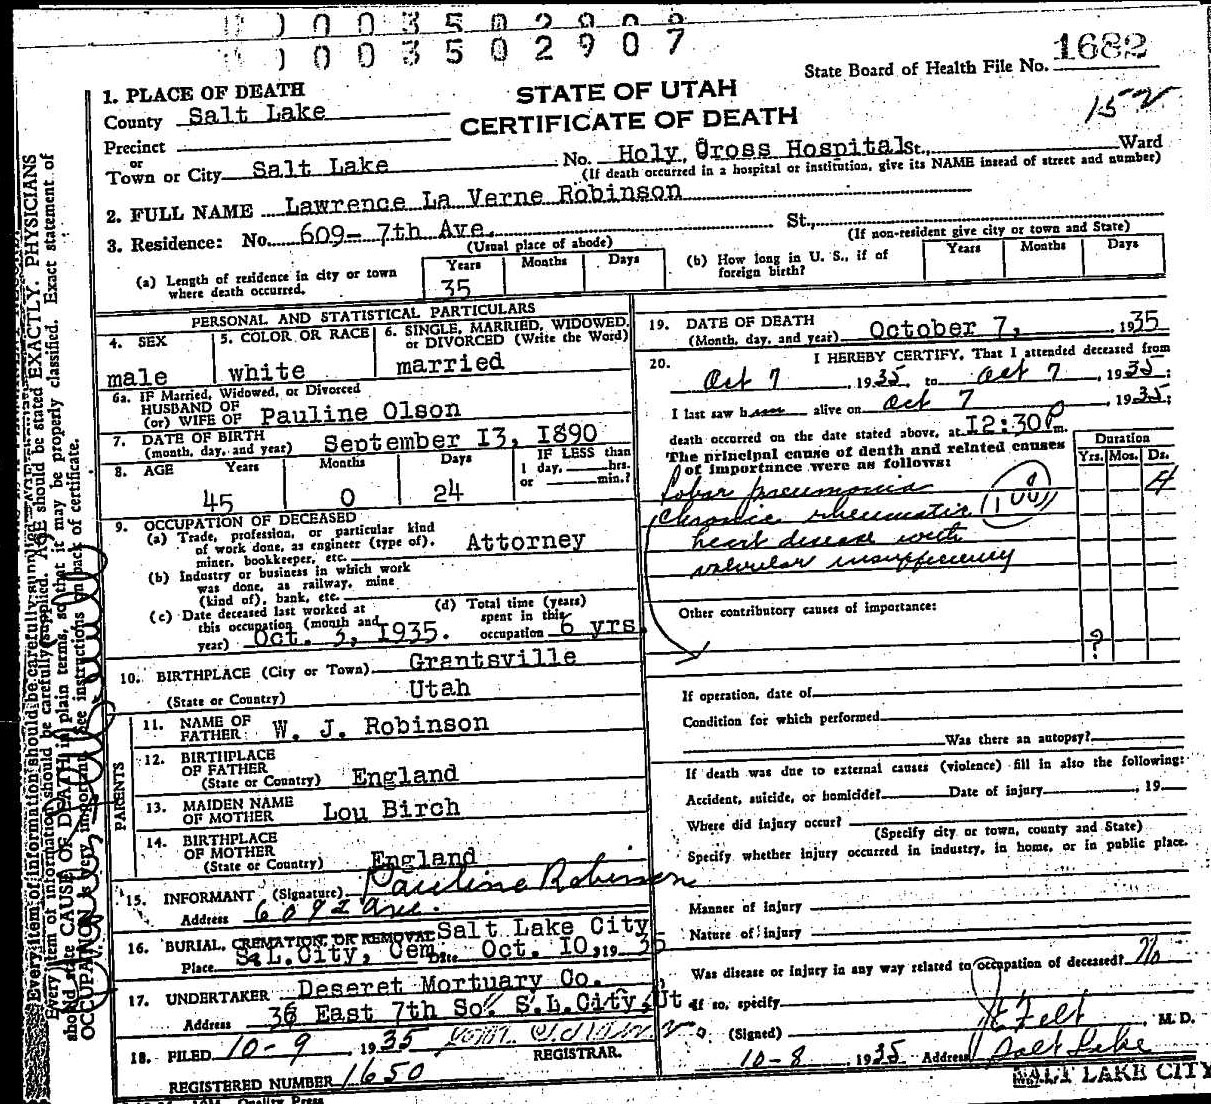 0003502909
0003502907
State Board of Health File No. 1682
152
STATE OF UTAH
CERTIFICATE OF DEATH
1. PLACE OF DEATH
County Salt Lake
Precinct
or
Town or City Salt Lake No. Holy Cross Hospital St., Ward
(If death occurred in a hospital or institution, give its NAME insead of street and number)
2. FULL NAME Lawrence La Verne Robinson
3. Residence: No. 609- 7th Ave. St.,
(Usual place of abode) (If non-resident give city or town and State)
(a) Length of residence in city or town where death occurred. Years 35 Months Days
(b) How long in U. S., if of foreign birth? Years Months Days
PERSONAL AND STATISTICAL PARTICULARS
4. SEX male
5. COLOR OR RACE white
6. SINGLE, MARRIED, WIDOWED, or DIVORCED (Write the Word) married
6a. IF Married, Widowed, or Divorced
HUSBAND OF
(or) WIFE OF Pauline Olson
7. DATE OF BIRTH
(month, day, and year) September 13, 1890
8. AGE Years 45 Months 0 Days 24
IF LESS than
1 day, hrs.
or min.?
9. OCCUPATION OF DECEASED
(a) Trade, profession, or particular kind
of work done, as engineer (type of).
miner, bookkeeper, etc. Attorney
(b) Industry or business in which work
was done, as railway, mine
(kind of), bank, etc.
(c) Date deceased last worked at
this occupation (month and
year) Oct. 3, 1935.
(d) Total time (years)
spent in this
occupation 6 yrs.
10. BIRTHPLACE (City or Town) Grantsville
(State or Country) Utah
PARENTS
11. NAME OF
FATHER W. J. Robinson
12. BIRTHPLACE
OF FATHER
(State or Country) England
13. MAIDEN NAME
OF MOTHER Lou Birch
14. BIRTHPLACE
OF MOTHER
(State or Country) England
15. INFORMANT (Signature) Pauline Robinson
Address 609 7 Ave.
16. BURIAL, CREMATION, OR REMOVAL Salt Lake City
Place S.L.City, Cem. Date Oct. 10, 19 35
17. UNDERTAKER Deseret Mortuary Co.
Address 36 East 7th So. S.L.City, Ut
18. FILED 10-9, 1935
REGISTRAR.
REGISTERED NUMBER 1650
19. DATE OF DEATH
(Month, day, and year) October 7, 1935
20. I HEREBY CERTIFY, That I attended deceased from
Oct 7, 1935, to Oct 7, 1935;
I last saw him alive on Oct 7, 1935;
death occurred on the date stated above, at 12:30 P m.
The principal cause of death and related causes
of importance were as follows:
Duration
Yrs. Mos. Ds.
Lobar pneumonia 4
Chronic rheumatic
heart disease with
valvular insufficiency
Other contributory causes of importance:
?
If operation, date of
Condition for which performed
Was there an autopsy?
If death was due to external causes (violence) fill in also the following:
Accident, suicide, or homicide? Date of injury , 19
Where did injury occur?
(Specify city or town, county and State)
Specify whether injury occurred in industry, in home, or in public place.
Manner of injury
Nature of injury
Was disease or injury in any way related to occupation of deceased? No
If so, specify
(Signed) Felt, M. D.
10-8, 1935 Address Salt Lake
SALT LAKE CITY
Every item of information should be carefully supplied. AGE should be stated EXACTLY. PHYSICIANS
should state CAUSE OF DEATH in plain terms, so that it may be properly classified. Exact statement of
OCCUPATION is very important. See instructions on back of certificate.